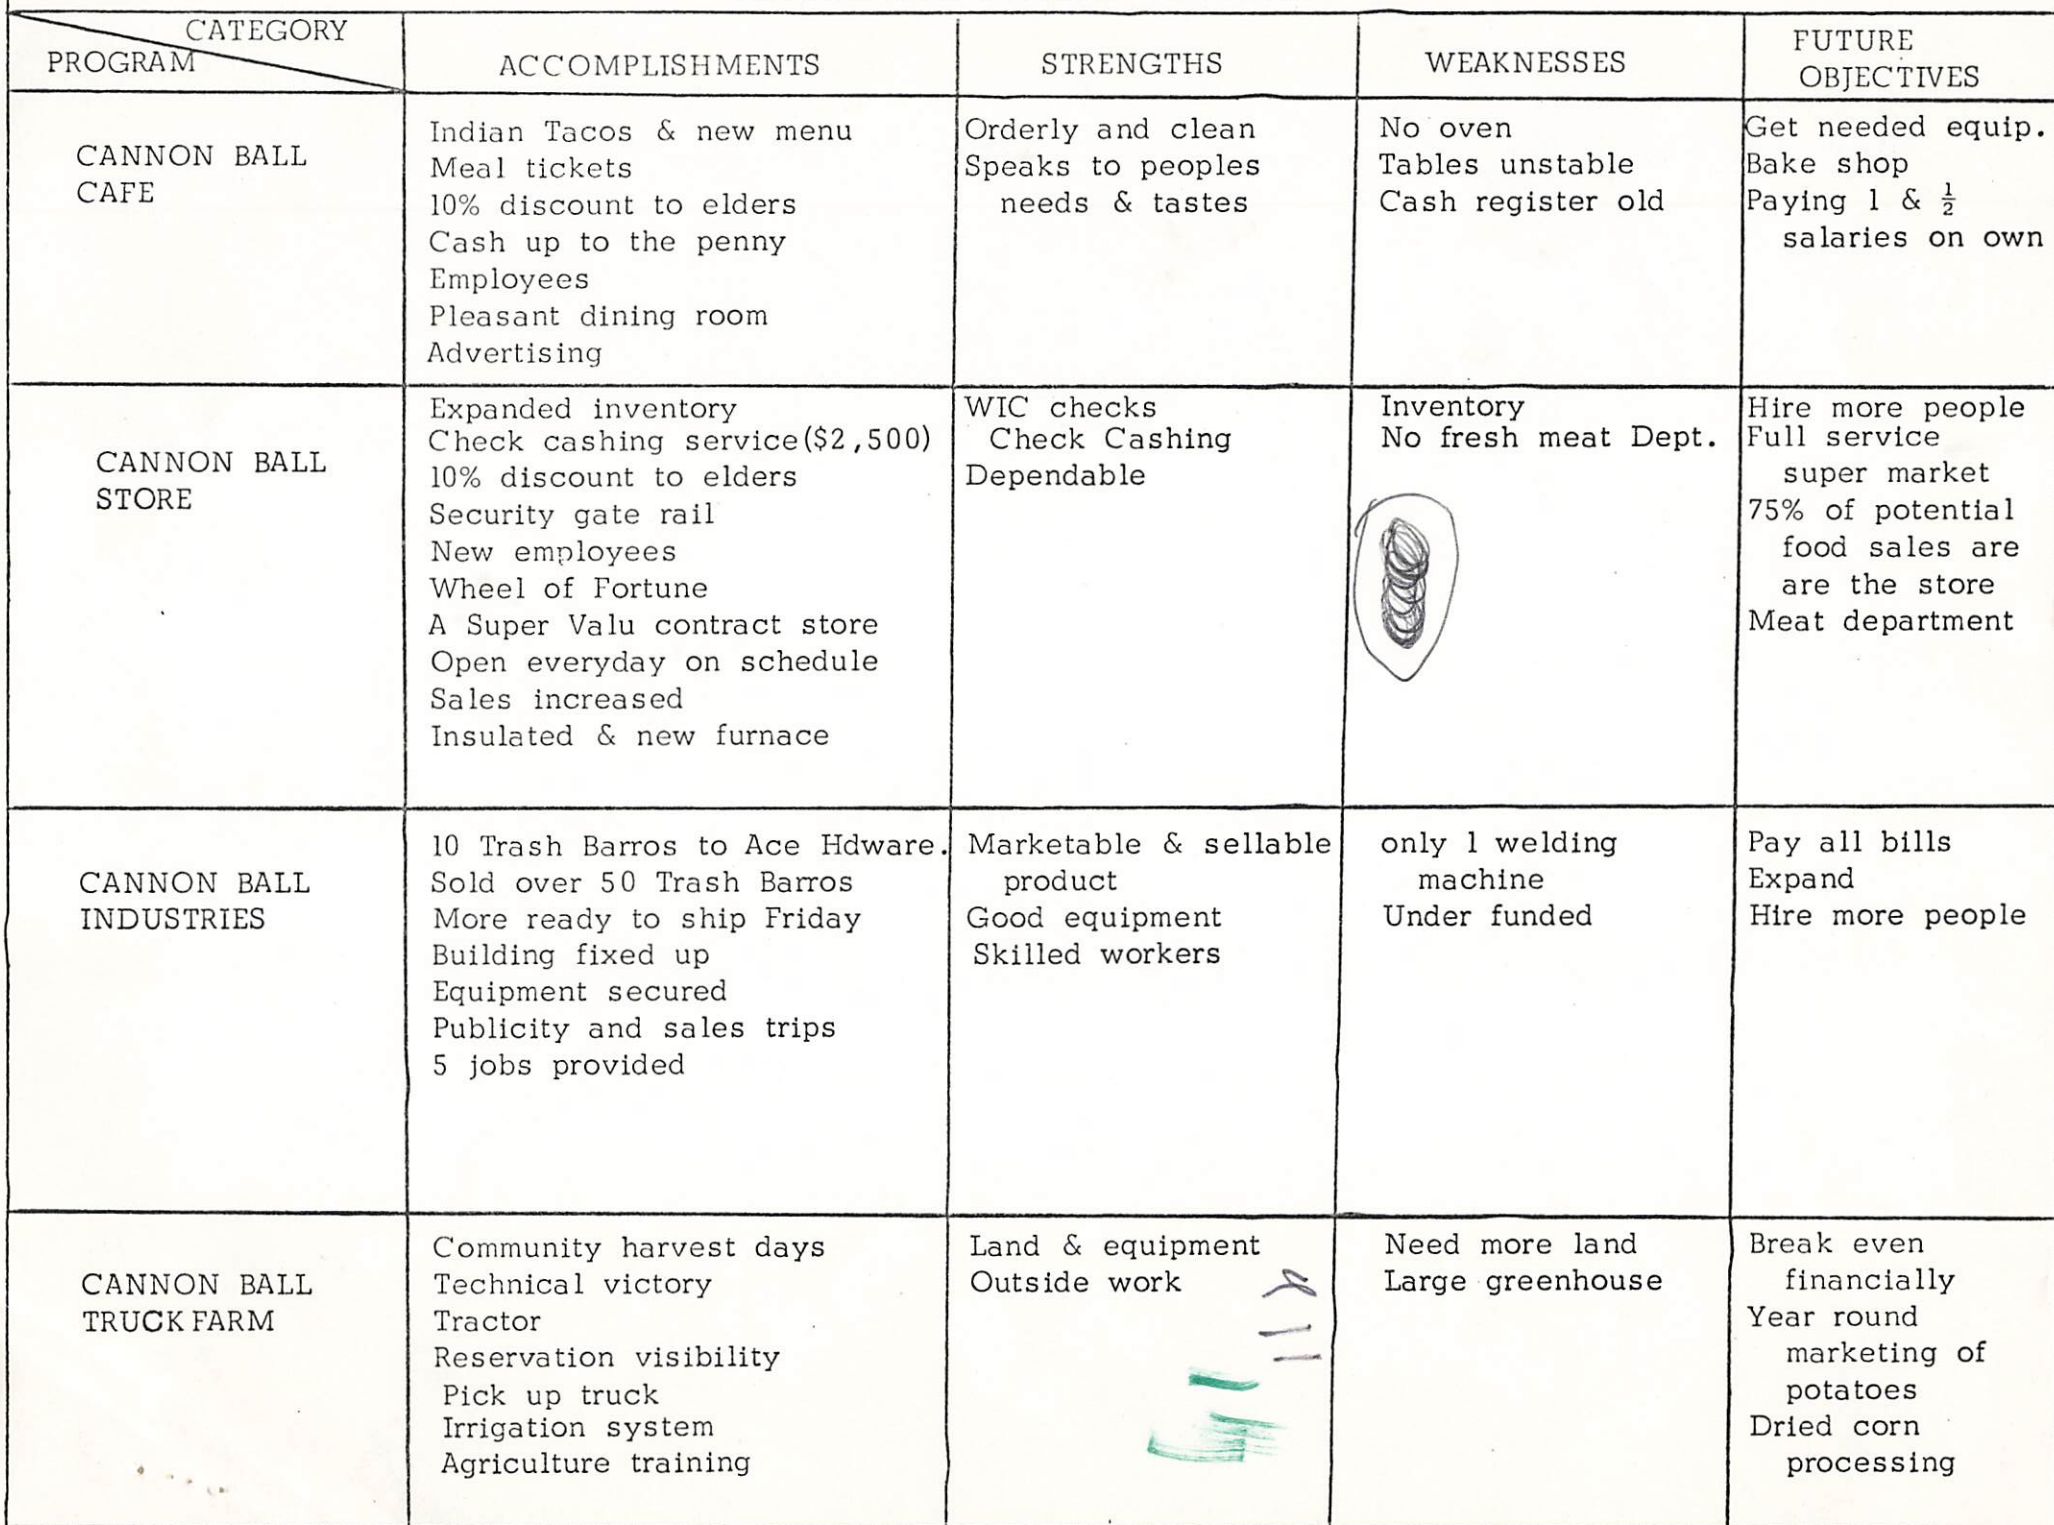 CATEGORY
PROGRAM
ACCOMPLISHMENTS
STRENGTHS
WEAKNESSES
FUTURE
OBJECTIVES
CANNON BALL
CAFE
Indian Tacos & new menu
Meal tickets
10% discount to elders
Cash up to the penny
Employees
Pleasant dining room
Advertising
Orderly and clean
Speaks to peoples
needs & tastes
No oven
Tables unstable
Cash register old
Get needed equip.
Bake shop
Paying 1 & ½
salaries on own
CANNON BALL
STORE
Expanded inventory
Check cashing service($2,500)
10% discount to elders
Security gate rail
New employees
Wheel of Fortune
A Super Valu contract store
Open everyday on schedule
Sales increased
Insulated & new furnace
WIC checks
Check Cashing
Dependable
Inventory
No fresh meat Dept.
Hire more people
Full service
super market
75% of potential
food sales are
are the store
Meat department
CANNON BALL
INDUSTRIES
10 Trash Barros to Ace Hdware.
Sold over 50 Trash Barros
More ready to ship Friday
Building fixed up
Equipment secured
Publicity and sales trips
5 jobs provided
Marketable & sellable
product
Good equipment
Skilled workers
only 1 welding
machine
Under funded
Pay all bills
Expand
Hire more people
CANNON BALL
TRUCK FARM
Community harvest days
Technical victory
Tractor
Reservation visibility
Pick up truck
Irrigation system
Agriculture training
Land & equipment
Outside work
Need more land
Large greenhouse
Break even
financially
Year round
marketing of
potatoes
Dried corn
processing